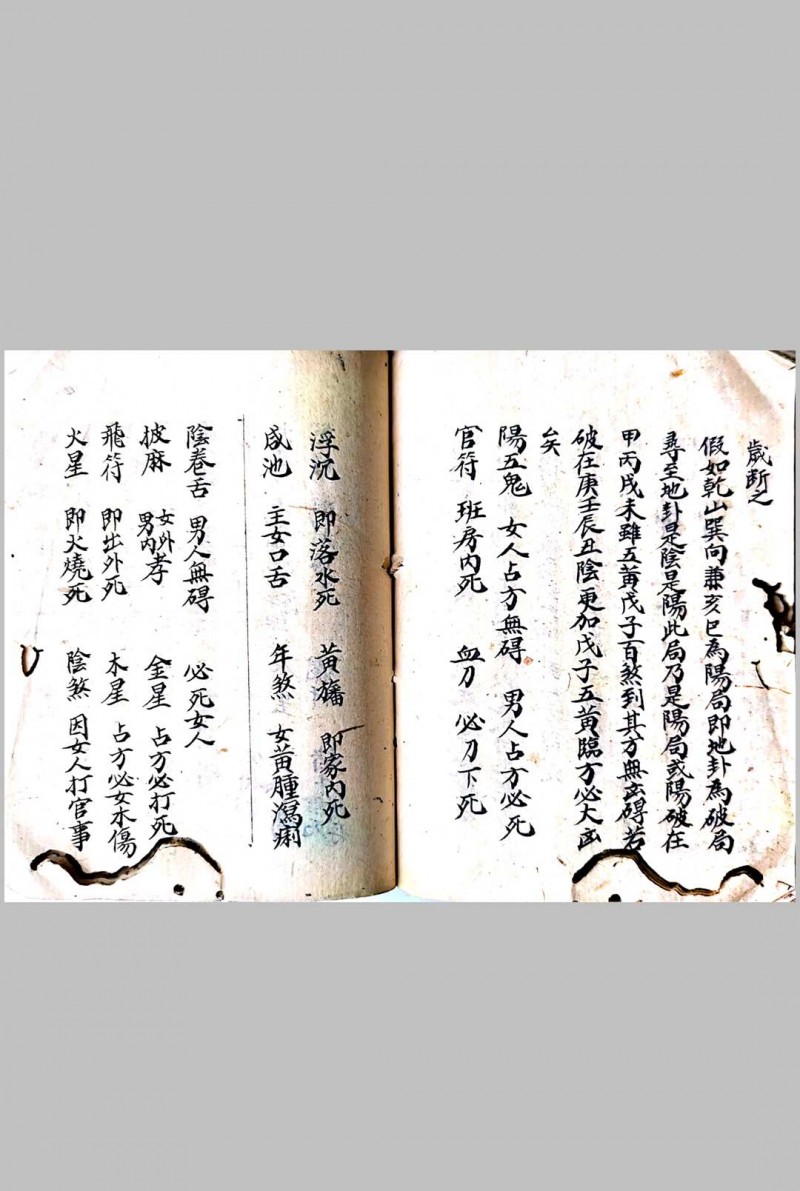 歲斷之
假如乾山巽向兼亥巳為陽局即地卦為破局
尋至地卦是陰是陽此局乃是陽局或陽破在
甲丙戌未雖五黃戊子百煞到其方無玄碍若
破在庚壬辰丑陰更加戊子五黃臨方必大凶
矣
陽五鬼 女人占方無碍 男人占方必死
官符 班房內死 血刀 必刀下死
浮沉 即落水死 黃旛 即家內死
咸池 主女口舌 年煞 女黃腫瀉痢
陰卷舌 男人無碍 必死女人
披麻 女外男內孝 金星 占方必打死
飛符 即出外死 木星 占方必女木傷
火星 即火燒死 陰煞 因女人打官事